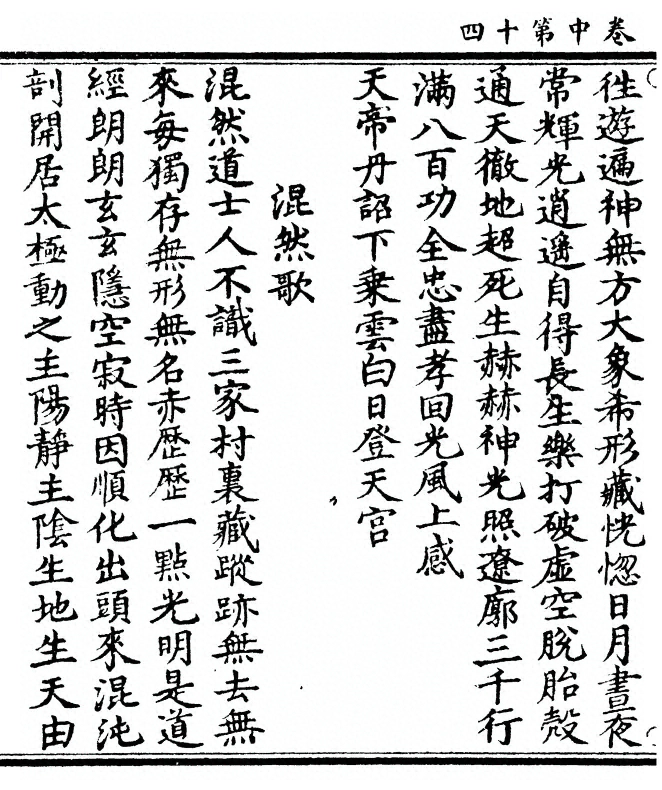 卷中第十四
徃遊遍神無方大象希形藏恍惚日月晝夜
常輝光逍遥自得長生樂打破虛空脫胎殼
通天徹地超死生赫赫神光照遼廓三千行
滿八百功全忠盡孝回光風上感
天帝丹詔下乗雲白日登天宫
混然歌
混然道士人不識三家村裏藏蹤跡無去無
來每獨存無形無名赤歷歷一點光明是道
經朗朗玄玄隱空寂時因順化出頭來混沌
剖開居太極動之主陽靜主陰生地生天由